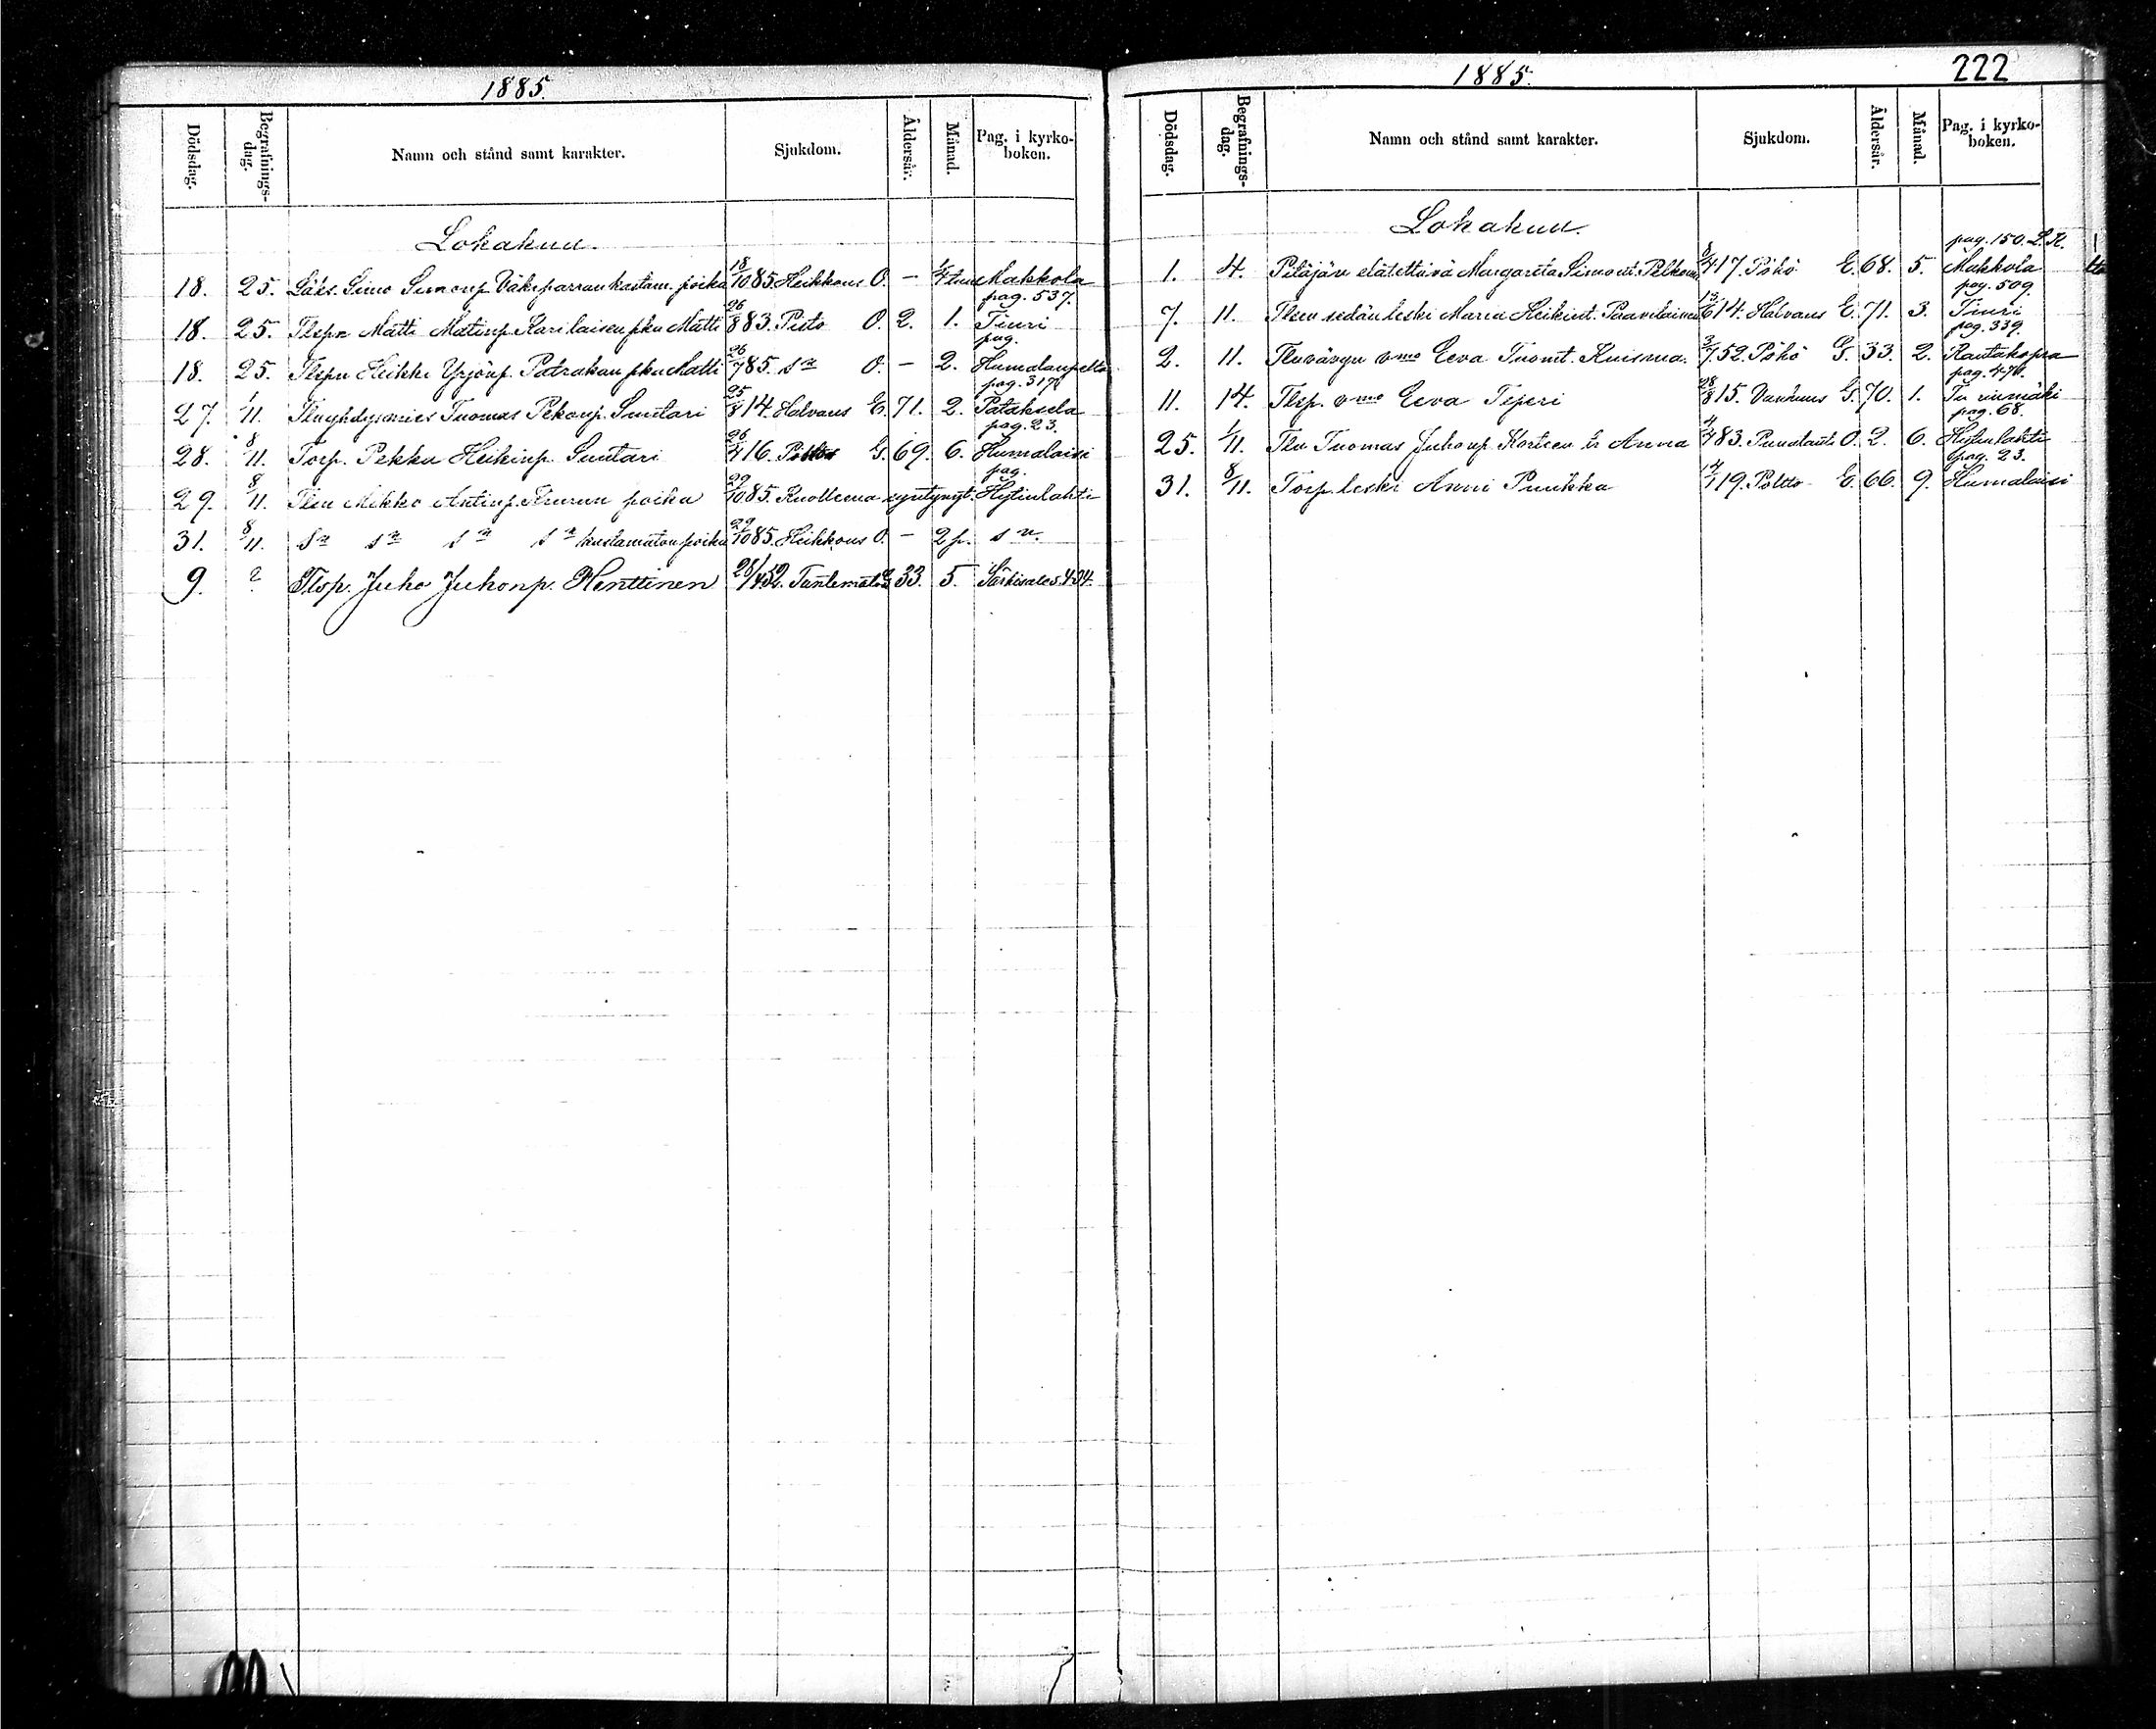 1885.
Dödsdag. Begrafnings-dag. Namn och stånd samt karakter. Sjukdom. Åldersår. Månad. Pag. i kyrko-boken.
Lokakuu.
18. 25. Läks. Simo Simonp. poika 18/10 85. Heikkous O. — 1/4 Makkola
pag. 537.
18. 25. Tlspn Matti Matinp. Karilaisen pku Matti 26/8 83. Pisto O. 2. 1. Tiuri
pag.
18. 25. Tlspn Heikki Yrjönp. Patrakan pku Matti 26/7 85. sn O. — 2. Humalanpelto
pag. 317
27. 1/11. Tuomas Pekanp. Suutari 25/8 14. Halvaus E. 71. 2. Pataksela
pag. 23.
28. 8/11. Torp. Pekka Heikinp. Suutari 26/4 16. Poltto G. 69. 6. Humalaisi
pag.
29. 8/11. Tlen Mikko Antinp. poika 29/10 85. Kuolleena syntynyt. Hytinlahti
31. 8/11. sn sn sn sn kastamaton poika 29/10 85. Heikkous O. — 2 p. sn.
9. ? Tlsp. Juho Juhonp. Henttinen 28/4 52. 33. 5. Särkisalo 404.
1885.
222
Dödsdag. Begrafnings-dag. Namn och stånd samt karakter. Sjukdom. Åldersår. Månad. Pag. i kyrko-boken.
Lokakuu.
pag. 150. L. K.
1. 4. Pitäjän elätettävä Margareta Simont. Pelkonen 8/4 17. Pöhö E. 68. 5. Makkola
pag. 509
7. 11. Tlen sedän leski Maria Heikint. Paavilainen 13/6 14. Halvaus E. 71. 3. Tiuri
pag. 339.
2. 11. Tlnvävyn vmo Eeva Tuomt. Kuisma 3/7 52. Pöhö G. 33. 2. Rautakopra
pag. 471.
11. 14. Tlsp. vmo Eeva Tejeri 28/8 15. Vanhuus G. 70. 1.
pag. 68.
25. 1/11. Tln Tuomas Juhonp. tr Anna 4/4 83. Punatauti O. 2. 6. Hytinlahti
pag. 23.
31. 8/11. Torp. leski Anni Puukka 4/1 19. Poltto E. 66. 9. Humalaisi